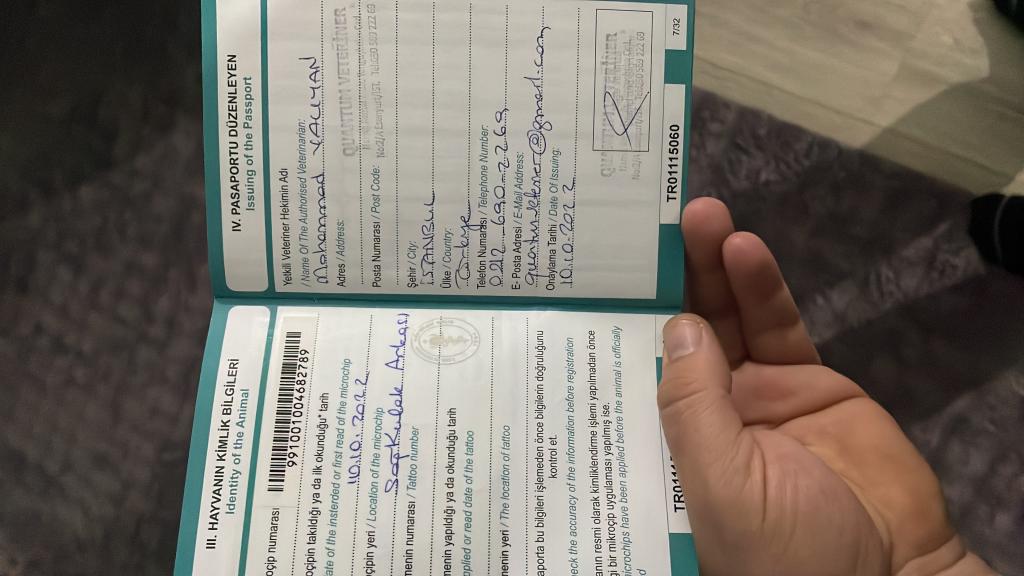 III. HAYVANIN KİMLİK BİLGİLERİ
Identity of the Animal
oçip numarası
991001004682789
oçipin takıldığı ya da ilk okunduğu* tarih
ate of the insterded or first read of the microchip
10.10.2022
oçipin yeri / Location of the microchip
Sağ Kulak Arkası
menin numarası / Tattoo number
menin yapıldığı ya da okunduğu tarih
pplied or read date of the tattoo
menin yeri / The location of tattoo
aporta bu bilgileri işlemeden önce bilgilerin doğruluğunu
kontrol et.
eck the accuracy of the information before registration
anın resmi olarak kimliklendirme işlemi yapılmadan önce
gi bir mikroçip uygulaması yapılmış ise.
microchips have been applied before the animal is officially
d
IV. PASAPORTU DÜZENLEYEN
Issuing of the Passport
Yetkili Veteriner Hekimin Adı
/ Name Of The Authorised Veterinarian:
Mohammad YALIYAN
Adres / Address:
QUANTUM VETERİNER
Posta Numarası / Post Code:
Şehir / City:
İSTANBUL
Ülke / Country:
Türkiye
Telefon Numarası / Telephone Number:
0212 690 22 69
E- Posta Adresi / E-Mail Address:
@gmail.com
Onaylama Tarihi / Date Of Issuing:
10.10.2022
TR01115060
7/32